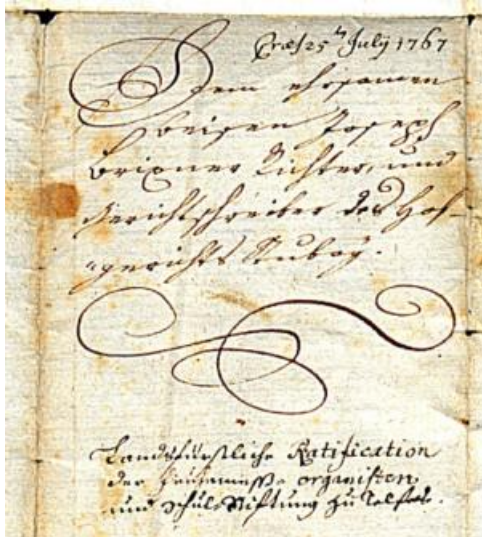 Præs 25ᵗ July 1767
Dem ehrsamen
weisen Joseph
Brixner Richter, und
Gerichtschreiber des Hof-
gerichts Stubay.
Landsfürstliche Ratification
der organisten
und Schul Stiftung zu Telfes.